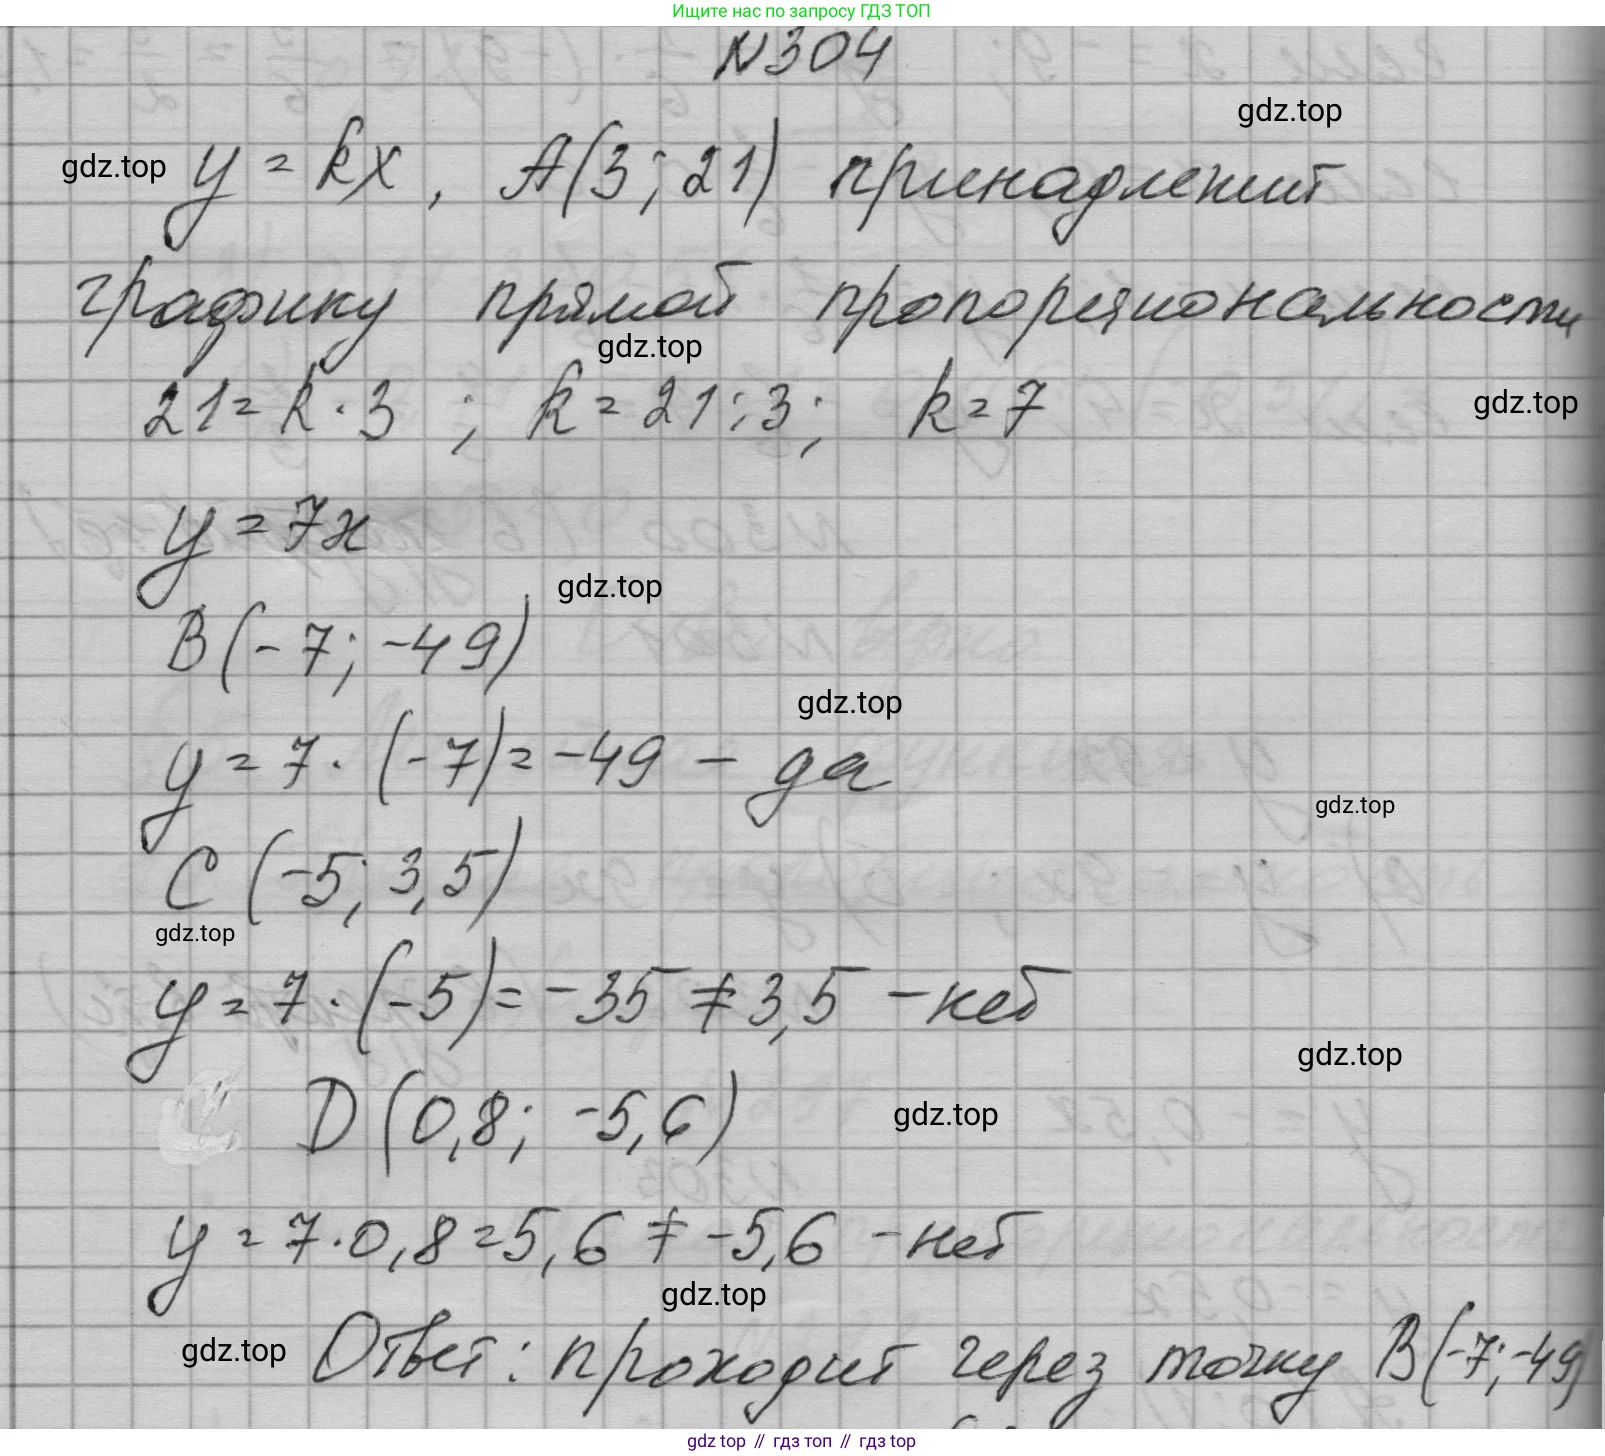 Ищите нас по запросу ГДЗ ТОП
N304
gdz.top
gdz.top
y = kx, A(3; 21) принадлежит
графику прямой пропорциональности
gdz.top
21 = k · 3 ; k = 21 : 3; k = 7
gdz.top
y = 7x
gdz.top
B(-7; -49)
gdz.top
y = 7 · (-7) = -49 - да
gdz.top
C (-5; 3,5)
gdz.top
y = 7 · (-5) = -35 ≠ 3,5 - нет
gdz.top
D (0,8; -5,6)
gdz.top
y = 7 · 0,8 = 5,6 ≠ -5,6 - нет
gdz.top
gdz.top
Ответ: проходит через точку B(-7; -49)
gdz top // гдз топ // gdz top